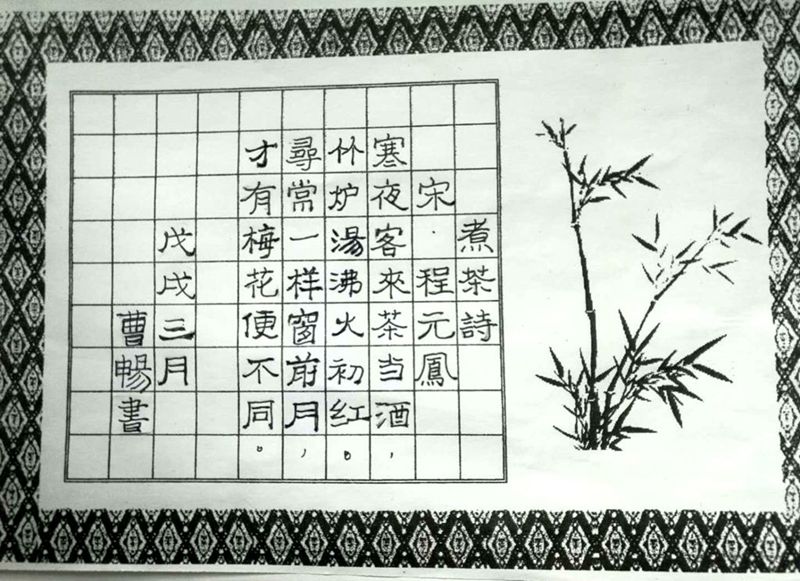 煮茶詩
宋·程元鳳
寒夜客來茶当酒，
竹炉湯沸火初红。
尋常一样窗前月，
才有梅花便不同。
戊戌三月
曹暢書